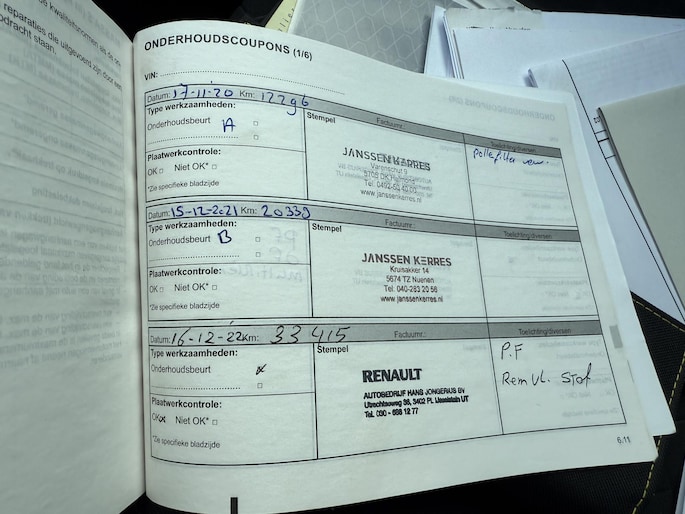 de kwaliteitsnormen als de on-
reparaties die uitgevoerd zijn door een
opdracht staan.
ONDERHOUDSCOUPONS (1/6)
VIN:
Datum: 17-11-20 Km: 12296
Type werkzaamheden:
Onderhoudsbeurt A
Plaatwerkcontrole:
OK Niet OK*
*Zie specifieke bladzijde
Stempel Factuurnr.:
JANSSEN KERRES
Varenschut 9
Tel. 0492-
www.janssenkerres.nl
Toelichting/diversen
Datum: 15-12-2021 Km: 20330
Type werkzaamheden:
Onderhoudsbeurt B
Plaatwerkcontrole:
OK Niet OK*
*Zie specifieke bladzijde
Stempel
JANSSEN KERRES
Kruisakker 14
5674 TZ Nuenen
Tel. 040-283 20 56
www.janssenkerres.nl
Toelichting/diversen
Datum: 16-12-22 Km: 33415
Type werkzaamheden:
Onderhoudsbeurt x
Plaatwerkcontrole:
OK x Niet OK*
*Zie specifieke bladzijde
Stempel Factuurnr.:
RENAULT
AUTOBEDRIJF HANS JONGERIUS BV
Utrechtseweg 36, 3402 PL IJsselstein UT
Tel. 030 - 688 12 77
Toelichting/diversen
P.F
Rem Vl. Stof
6.11